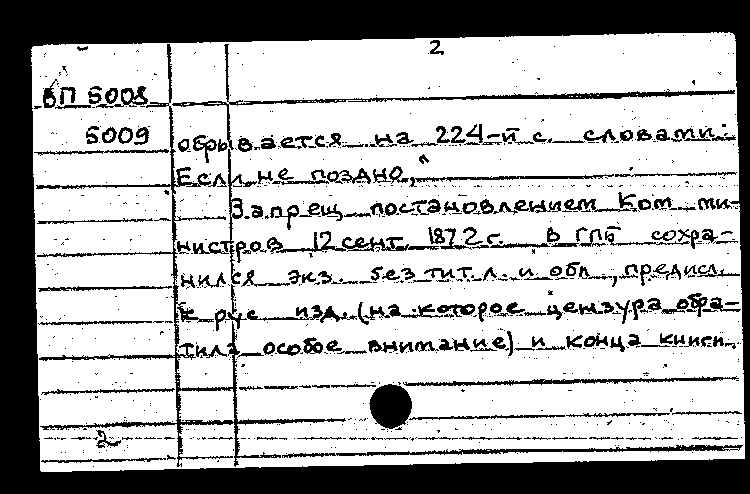 2
ВП 5008
5009 обрывается на 224-й с. словами:
Если не поздно,"
Запрещ постановлением Ком ми-
нистров 12 сент. 1872 г. В ГПБ сохра-
нился экз. без тит. л. и обл., предисл.
к рус изд. (на которое цензура обра-
тила особое внимание) и конца книги.
2